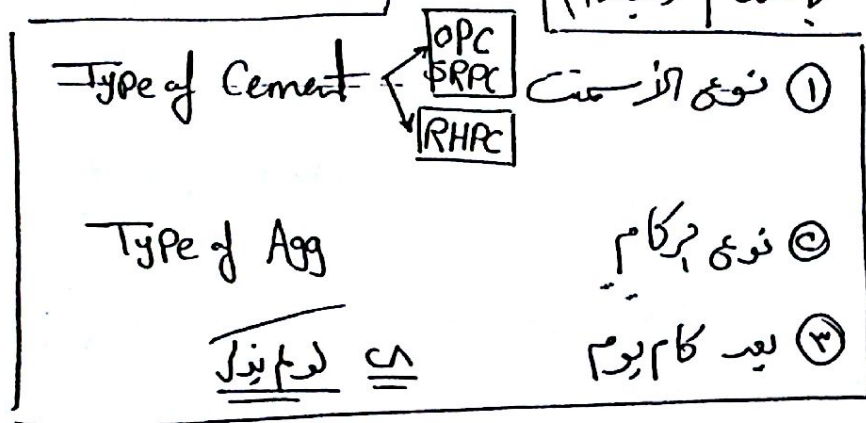 ① نوع الأسمنت Type of Cement
OPC
SRPC
RHPC
② نوع الركام Type of Agg
③ بعد كام يوم ٢٨ لو لم يذكر